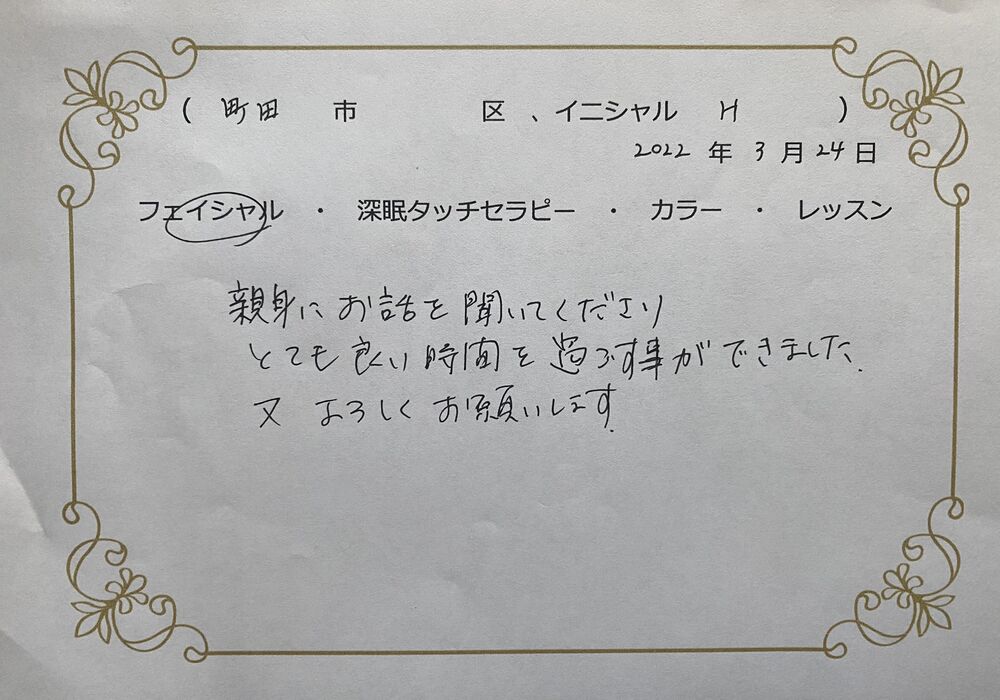 ( 町田 市 区 、イニシャル H )
2022 年 3 月 24 日
フェイシャル ・ 深眠タッチセラピー ・ カラー ・ レッスン
親身に お話を 聞いてくださり
とても 良い 時間を 過ごす事ができました.
又 よろしく お願いします.